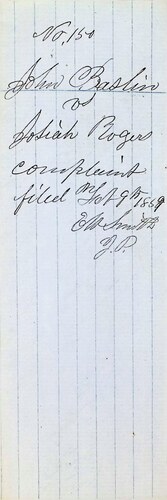 No, 150
John Baslin
vs
Josiah Rogers
complaint
filed Oct 9th 1889
EW Smith
J.P.